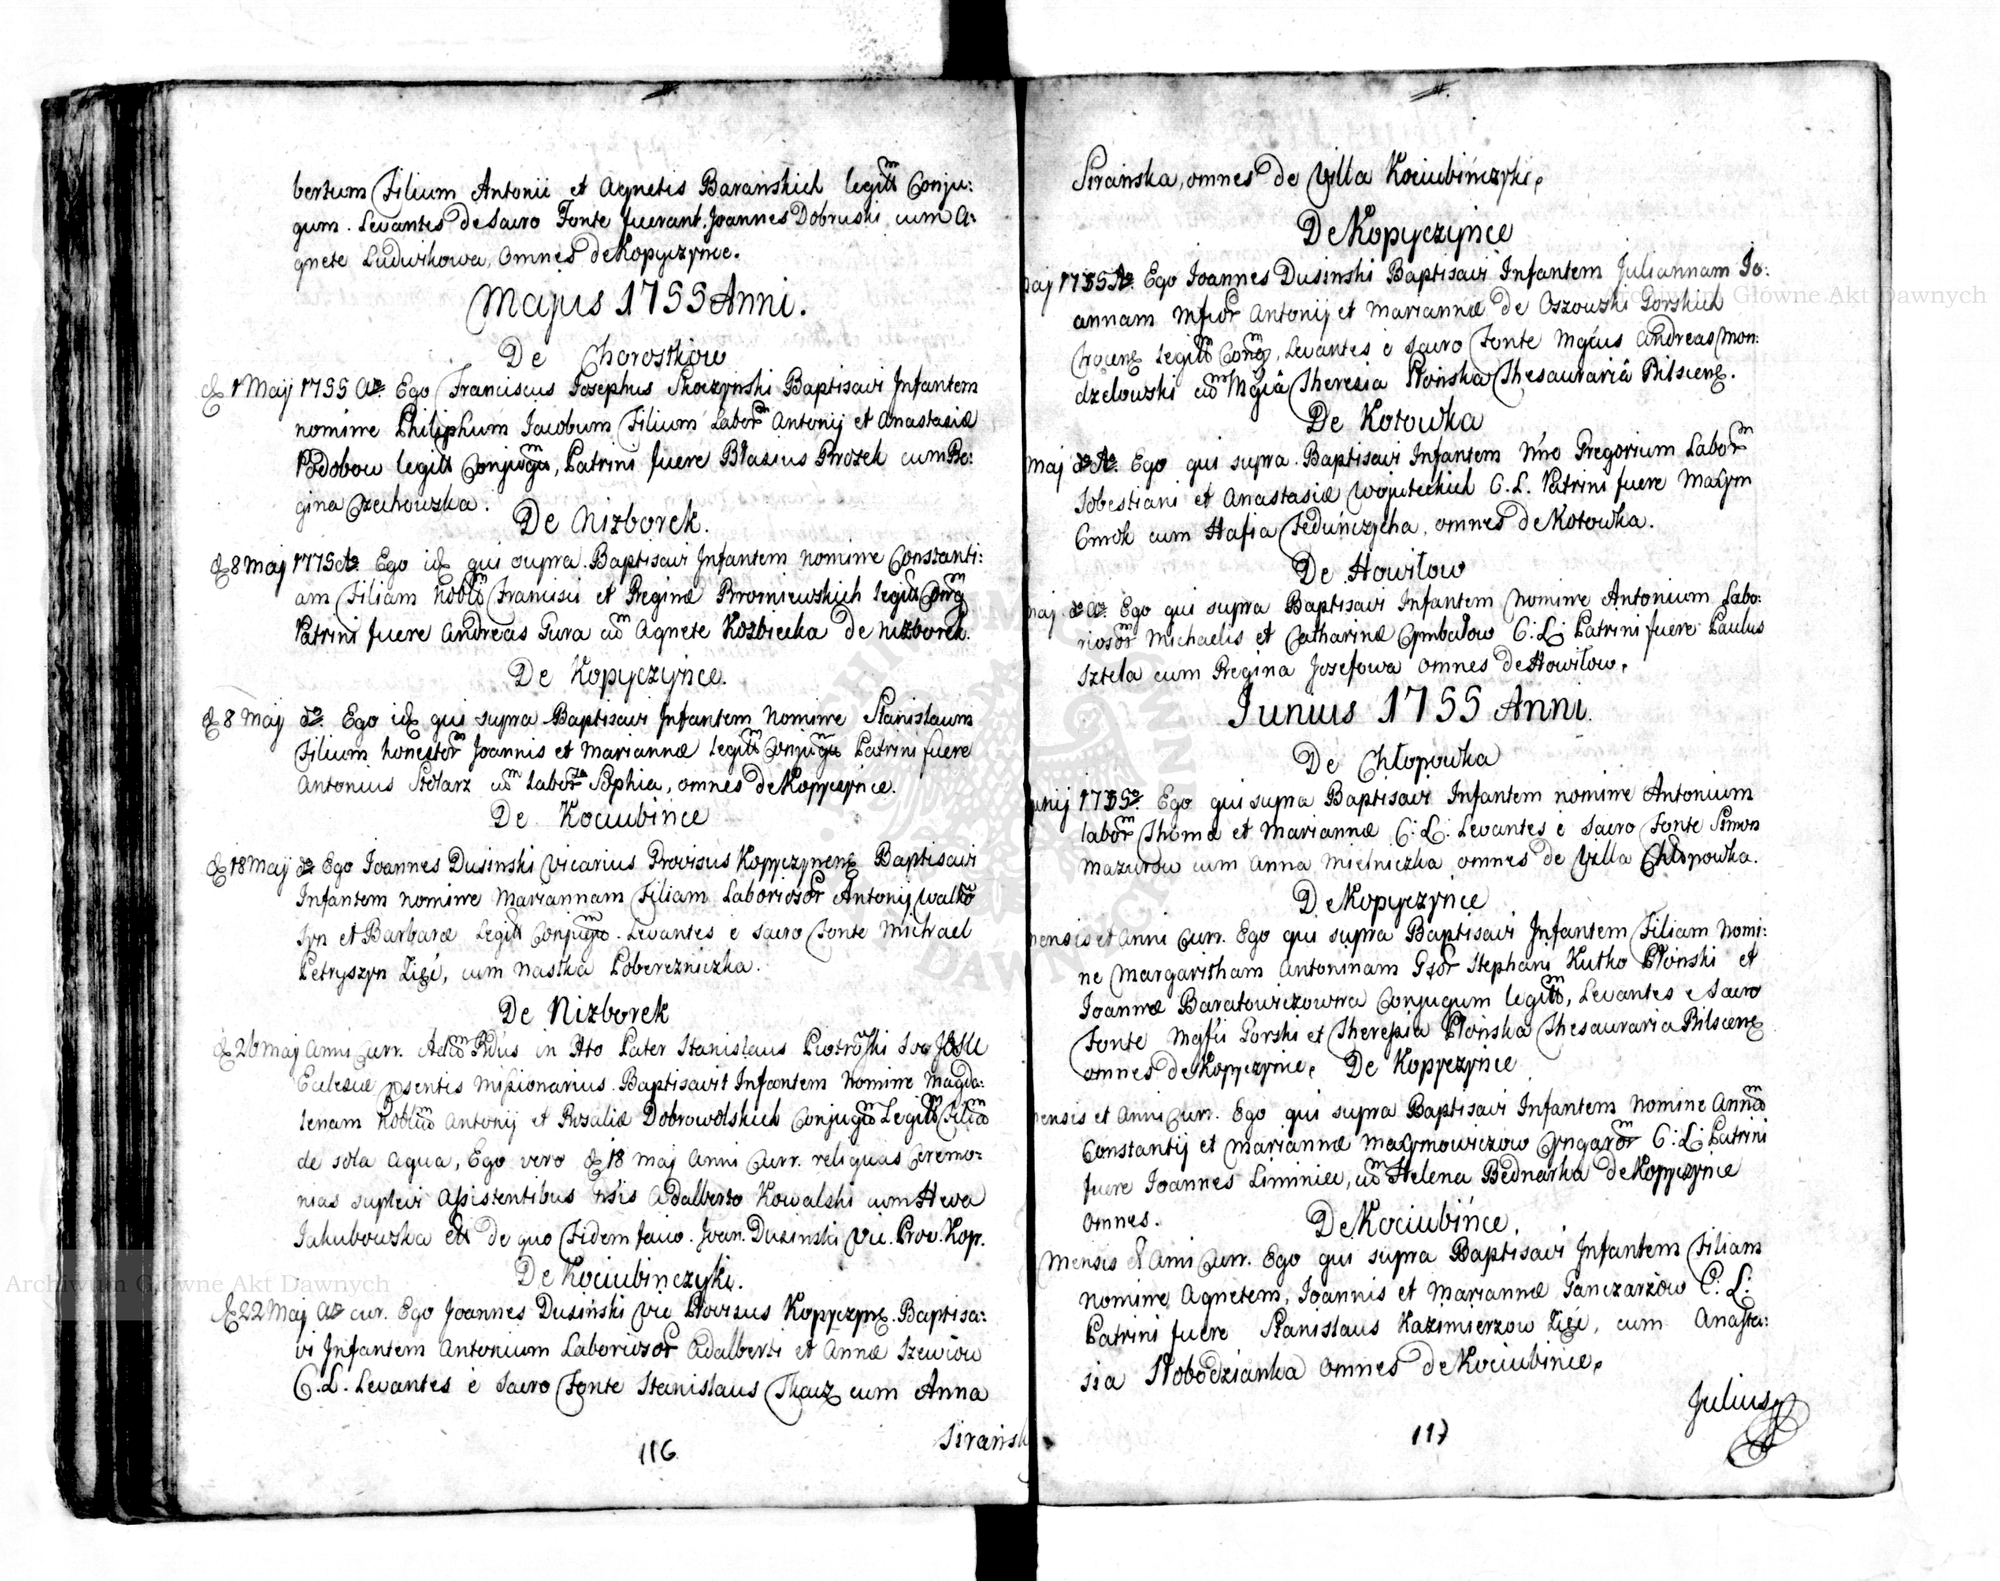 bertum Filium Antonii et Agnetis Barańskich legittm Conju:
gum. Levantes de Sacro Fonte fuerant Joannes Dobruski cum A:
gnete Ludwikowa, omnes de Kopyczynce.
Majus 1755 Anni.
De Chorostkow
1 Maij 1755 Ao. Ego Franciscus Josephus Skoczynski Baptisavi Infantem
nomine Philiphum Jacobum Filium Laborm Antonij et Anastasiæ
Podobow legitt Conjugum, Patrini fuere Błasius Prozek cum Re:
gina Czechowska.
De Nizborek.
8 Maij 1775 Ao. Ego id qui supra Baptisavi Infantem nomine Constanti:
am Filiam Noblm Francisci et Reginæ Broniewskich legitt Conjg
Patrini fuere Andreas Gura cum Agnete Kozbiecka de Nizborek.
De Kopyczyńce.
8 Maij do. Ego id qui supra Baptisavi Infantem Nomine Stanislaum
Filium honestorm Joannis et Mariannæ legittm Conjugum Patrini fuere
Antonius Stolarz cum Labor Sophia, omnes de Kopyczynce.
De Kociubince
18 Maij do Ego Joannes Dusinski Vicarius Provisus Kopyczynens Baptisavi
Infantem nomine Mariannam Filiam Laboriosor Antonij Walko
Syn et Barbaræ Legitt Conjugum. Levantes e Sacro Fonte Michael
Petryszyn Zięć, cum Nastka Pobereżniczka.
De Nizborek
26 Maij Anni Curr. Pater Stanislaus
Ecclesiæ psentis Missionarius Baptisavit Infantem Nomine Magda:
lenam Noblm Antonij et Rosaliæ Dobrowolskich Conjugum Legittm Filiam
de sola aqua, Ego vero 18 Maij Anni Curr. reliquas Ceremo:
nias suplevi Assistentibus Adalberto Kowalski cum Heva
Jakubowska de quo Fidem facio. Joan. Dusinski Vic. Prov. Kop.
De Kociubinczyki.
22 Maij Ao cur. Ego Joannes Dusiński Vic Provisus Kopyczyn. Baptisa:
vi Infantem Antonium Laboriosor Adalberti et Annæ Szewcow
C. L. Levantes e Sacro Fonte Stanislaus Tkacz cum Anna
Sirańsk
116
Sirańska, omnes de Villa Kociubińczyki.
De Kopyczyńce
Maij 1755 Ao. Ego Joannes Dusinski Baptisavi Infantem Juliannam Jo:
annam Mfcor Antonij et Mariannæ de Oszowski Gorskich
legittm Conjg, Levantes e Sacro Fonte Mgcus Andreas Mon:
dzelowski cum Mgca Theresia Płońska Thesauraria Pilscens.
De Kotowka
Maij do Ao. Ego qui supra Baptisavi Infantem Nne Gregorium Laborm
Sobestiani et Anastasiæ Woyteckich C. L. Patrini fuere Maxym
cum Hafia Feduńczycha, omnes de Kotowka.
De Howiłow
Maij do Ao. Ego qui supra Baptisavi Infantem Nomine Antonium Labo:
riosorm Michaelis et Catharinæ Cymbałow C: L: Patrini fuere Paulus
Sztela cum Regina Jozefowa omnes de Howiłow.
Junius 1755 Anni.
De Chłopowka
Junij 1755. Ego qui supra Baptisavi Infantem nomine Antonium
laborm Thomæ et Mariannæ C: L: Levantes e Sacro Fonte Simon
Mazurow cum Anna Mielniczka omnes de Villa Chłopowka.
De Kopyczynce
Mensis et Anni Curr. Ego qui supra Baptisavi Infantem Filiam Nomi:
ne Margaritham Antoninam Gsor Stephani Kutko Płonski et
Joannæ Baratowiczowna Conjugum legittm, Levantes e Sacro
Fonte Mgfci Gorski et Theresia Płońska Thesauraria Pilscens
omnes de Kopyczynce. De Kopyczynce
Mensis et Anni Curr. Ego qui supra Baptisavi Infantem Nomine Annam
Constantij et Mariannæ Maxymowiczow Cyngarorm C: L: Patrini
fuere Joannes Liminiec, cum Helena Bednarka de Kopyczynce
omnes.
De Kociubińce.
Mensis et Anni Curr. Ego qui supra Baptisavi Infantem Filiam
nomine Agnetem, Joannis et Mariannæ Ganczarzow C: L:
Patrini fuere Stanislaus Kazimierzow Zięć, cum Anasta:
sia Słobodzianka omnes de Kociubince.
Julius
117
Archiwum Główne Akt Dawnych
Archiwum Główne Akt Dawnych